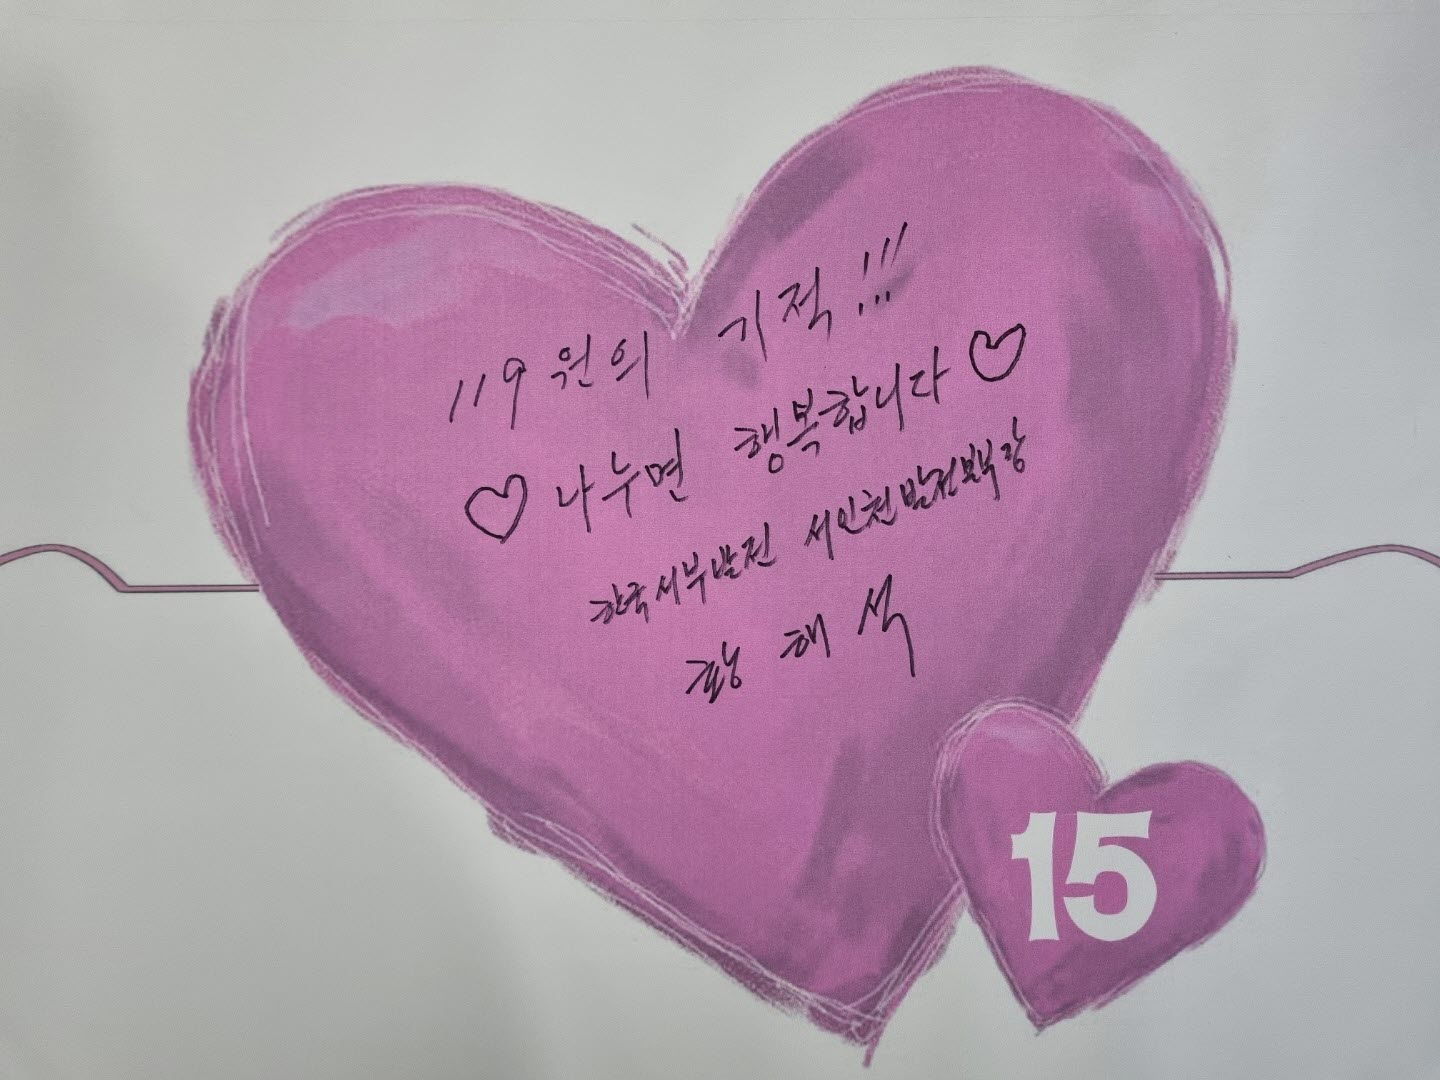 119원의 기적!!!
♡ 나누면 행복합니다 ♡
한국서부발전 서인천발전본부장
황해석
15